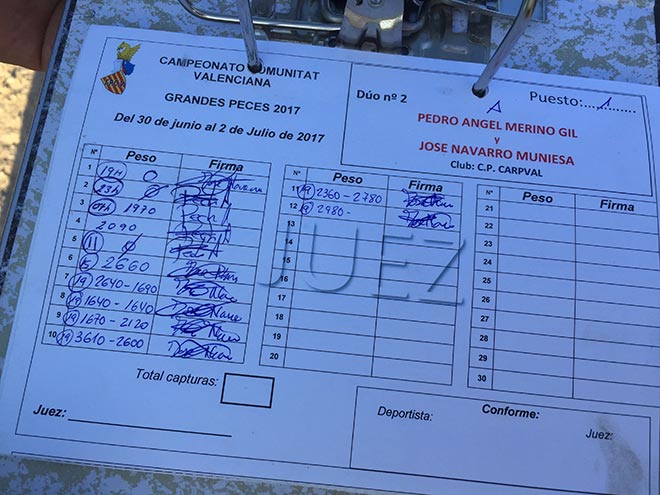 CAMPEONATO COMUNITAT
VALENCIANA
GRANDES PECES 2017
Del 30 de junio al 2 de Julio de 2017
Dúo nº 2
A
Puesto:....1........
PEDRO ANGEL MERINO GIL
y
JOSE NAVARRO MUNIESA
Club: C.P. CARPVAL
Nº Peso Firma
1 19H 0
2 23h 0
3 07h 1970
4 2090
5 11 0
6 15 2660
7 19 2640-1690
8 19 1640-1640
9 19 1670-2120
10 19 3610-2600
Nº Peso Firma
11 19 2360-2780
12 19 2980-
13
14
15
16
17
18
19
20
Nº Peso Firma
21
22
23
24
25
26
27
28
29
30
JUEZ
Total capturas:
Juez:
Conforme:
Deportista:
Juez: